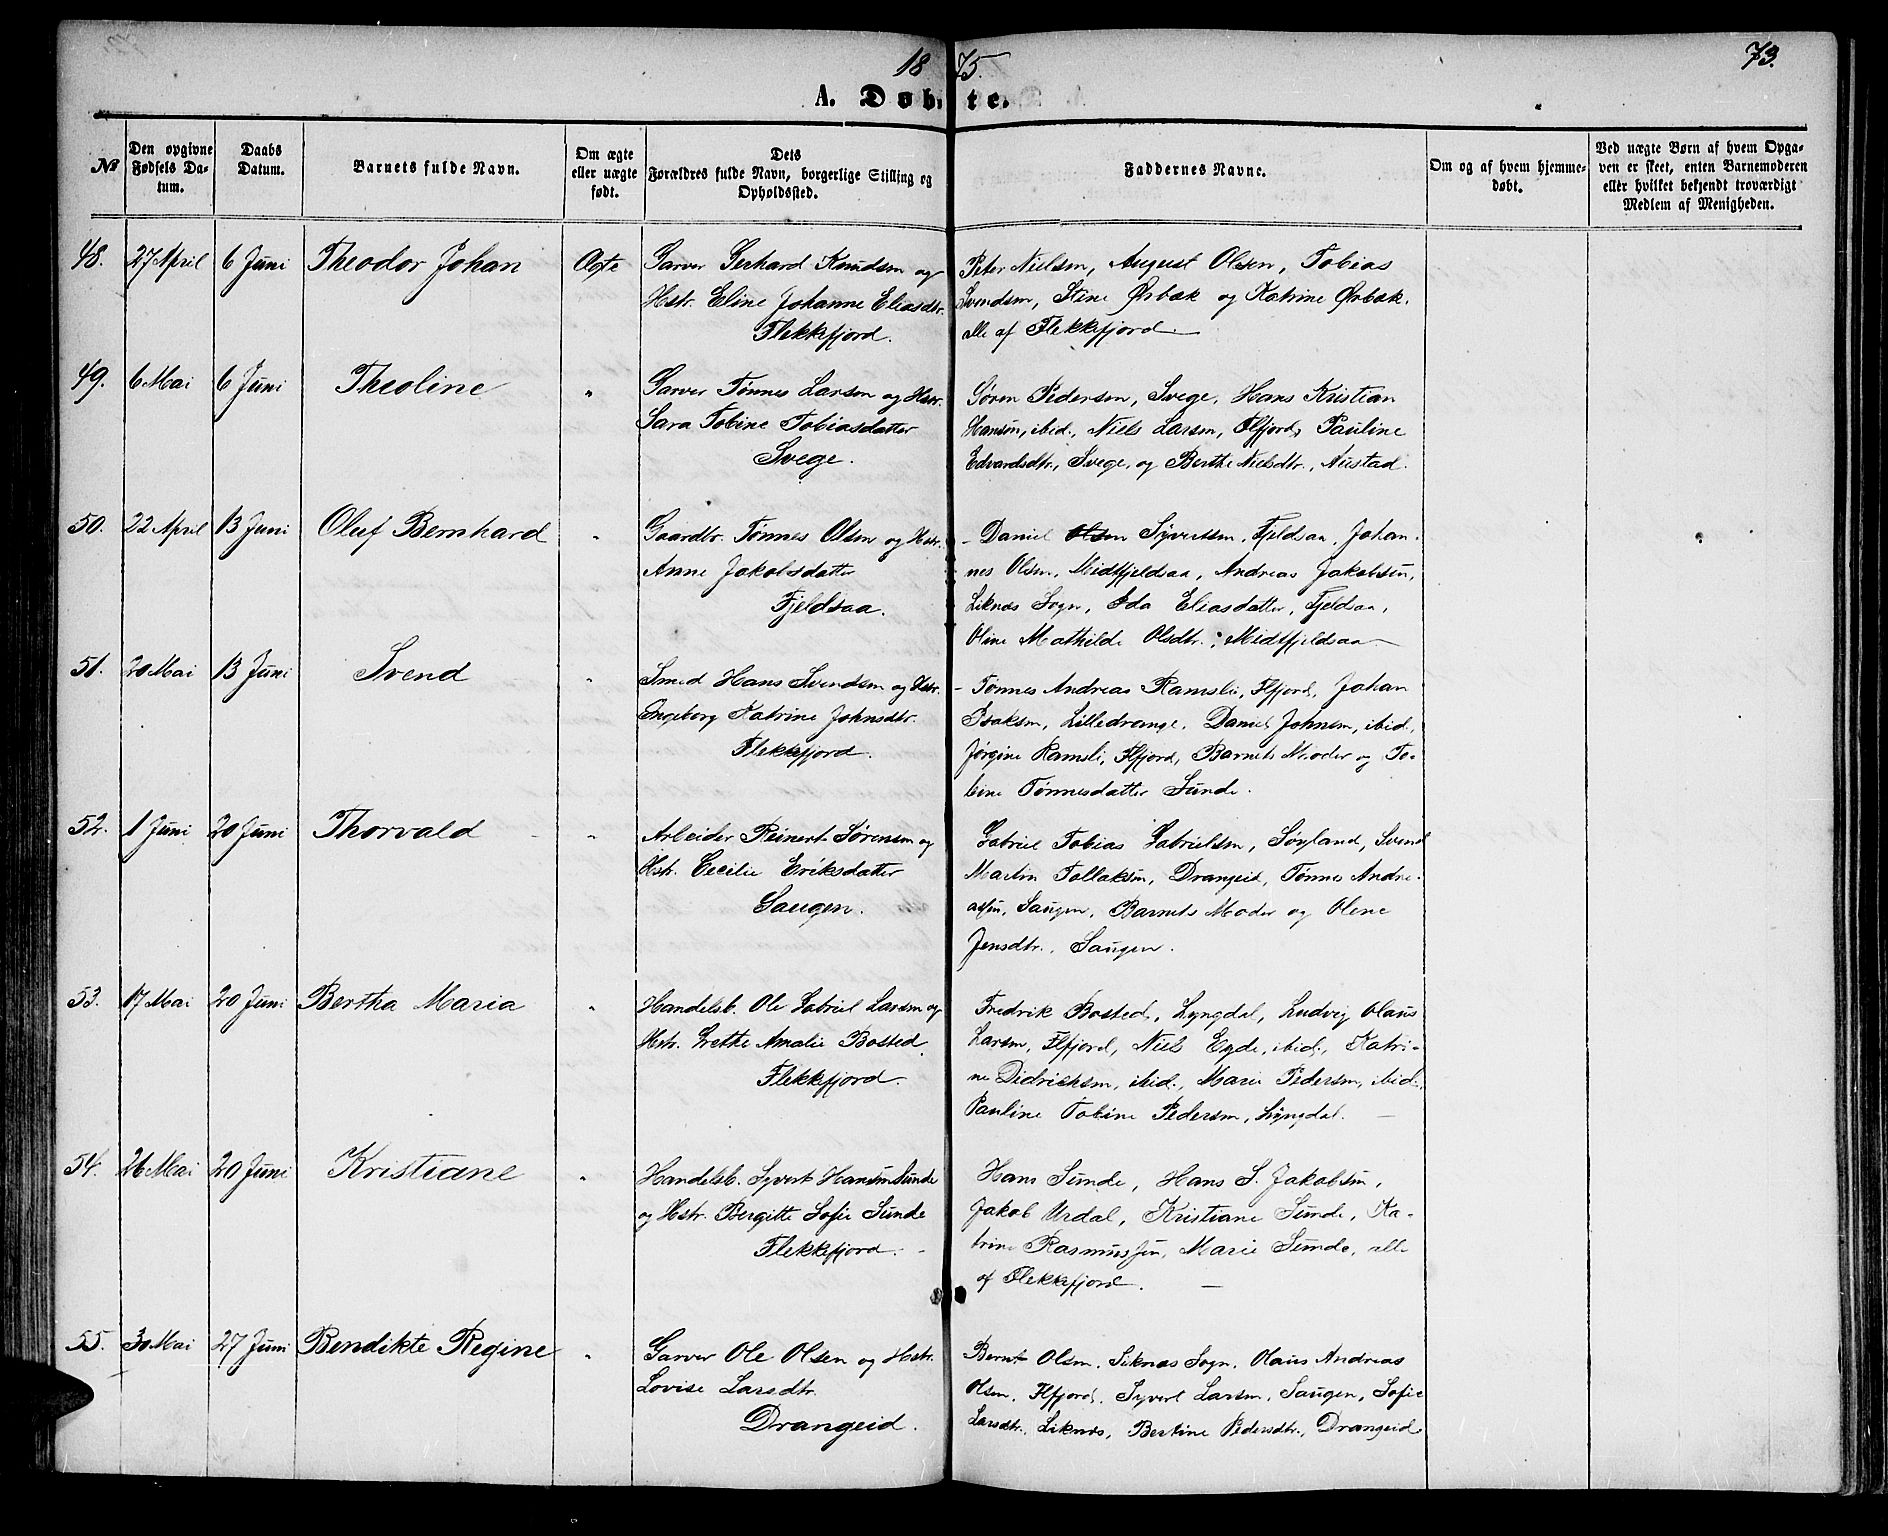 1875.
73.
A. Døbte.
No
Den opgivne Fødsels Datum.
Daabs Datum.
Barnets fulde Navn.
Om ægte eller uægte født.
Dets Forældres fulde Navn, borgerlige Stilling og Opholdssted.
Faddernes Navne.
Om og af hvem hjemmedøbt.
Ved uægte Børn af hvem Opgaven er skeet, enten Barnemoderen eller hvilket bekjendt troværdigt Medlem af Menigheden.
48. 27 April 6 Juni Theodor Johan Ægte
Garver Gerhard Knudsen og
Hstr. Eline Johanne Eliasdtr.
Flekkefjord.
Peter Nielsen, August Olsen, Tobias
Svendsen, Stine Ørbæk og Katrine Ørbæk,
alle af Flekkefjord.
49. 6 Mai 6 Juni Theoline "
Garver Tønnes Larsen og Hstr.
Sara Tobine Tobiasdatter
Svege.
Søren Pedersen, Svege, Hans Kristian
Hansen, ibid., Niels Larsen, Flfjord, Pauline
Edvardsdtr., Svege, og Berthe Nielsdtr., Austad.
50. 22 April 13 Juni Oluf Bernhard "
Gaardbr. Tønnes Olsen og Hstr.
Anne Jakobsdatter
Fjeldsaa.
- Daniel Olsen Syvertsen, Fjeldsaa, Johan-
nes Olsen, Midtfjeldsaa, Andreas Jakobsen,
Liknæs Sogn, Ida Eliasdatter, Fjeldsaa,
Oline Mathilde Olsdtr., Midtfjeldsaa
51. 20 Mai 13 Juni Svend "
Smed Hans Svendsen og Hstr.
Ingeborg Katrine Johnsdtr.
Flekkefjord.
- Tønnes Andreas Ramsli, Flfjord, Johan
Isaksen, Lilledrange, Daniel Johnsen, ibid.,
Jørgine Ramsli, Flfjord, Barnets Moder og To-
bine Tønnesdatter Sunde.
52. 1 Juni 20 Juni Thorvald "
Arbeider Reinert Sørensen og
Hstr. Cecilie Eriksdatter
Saugen.
Gabriel Tobias Gabrielsen, Søyland, Svend
Martin Tollaksen, Drangeid, Tønnes Andre-
assen, Saugen, Barnets Moder og Olene
Jensdtr., Saugen.
53. 17 Mai 20 Juni Bertha Maria "
Handelsb. Ole Gabriel Larsen og
Hstr. Grethe Amalie Bosted
Flekkefjord.
Fredrik Bosted, Lyngdal, Ludvig Olaus
Larsen, Flfjord, Niels Eyde, ibid., Katri-
ne Didricksen, ibid., Marie Pedersen, ibid.
Pauline Tobine Pedersen, Lyngdal.
54. 26 Mai 20 Juni Kristiane "
Handelsb. Syvert Hansen Sunde
og Hstr. Bergitte Sofie Sunde
Flekkefjord.
Hans Sunde, Hans S. Jakobsen,
Jakob Urdal, Kristiane Sunde, Ka-
trine Rasmussen, Marie Sunde, alle
af Flekkefjord.
55. 30 Mai 27 Juni Bendikte Regine "
Garver Ole Olsen og Hstr.
Lovise Larsdtr.
Drangeid.
Bernt Olsen, Liknæs Sogn, Olaus Andreas
Olsen, Flfjord, Syvert Larsen, Saugen, Sofie
Larsdtr., Liknæs, Bertine Pedersdtr., Drangeid